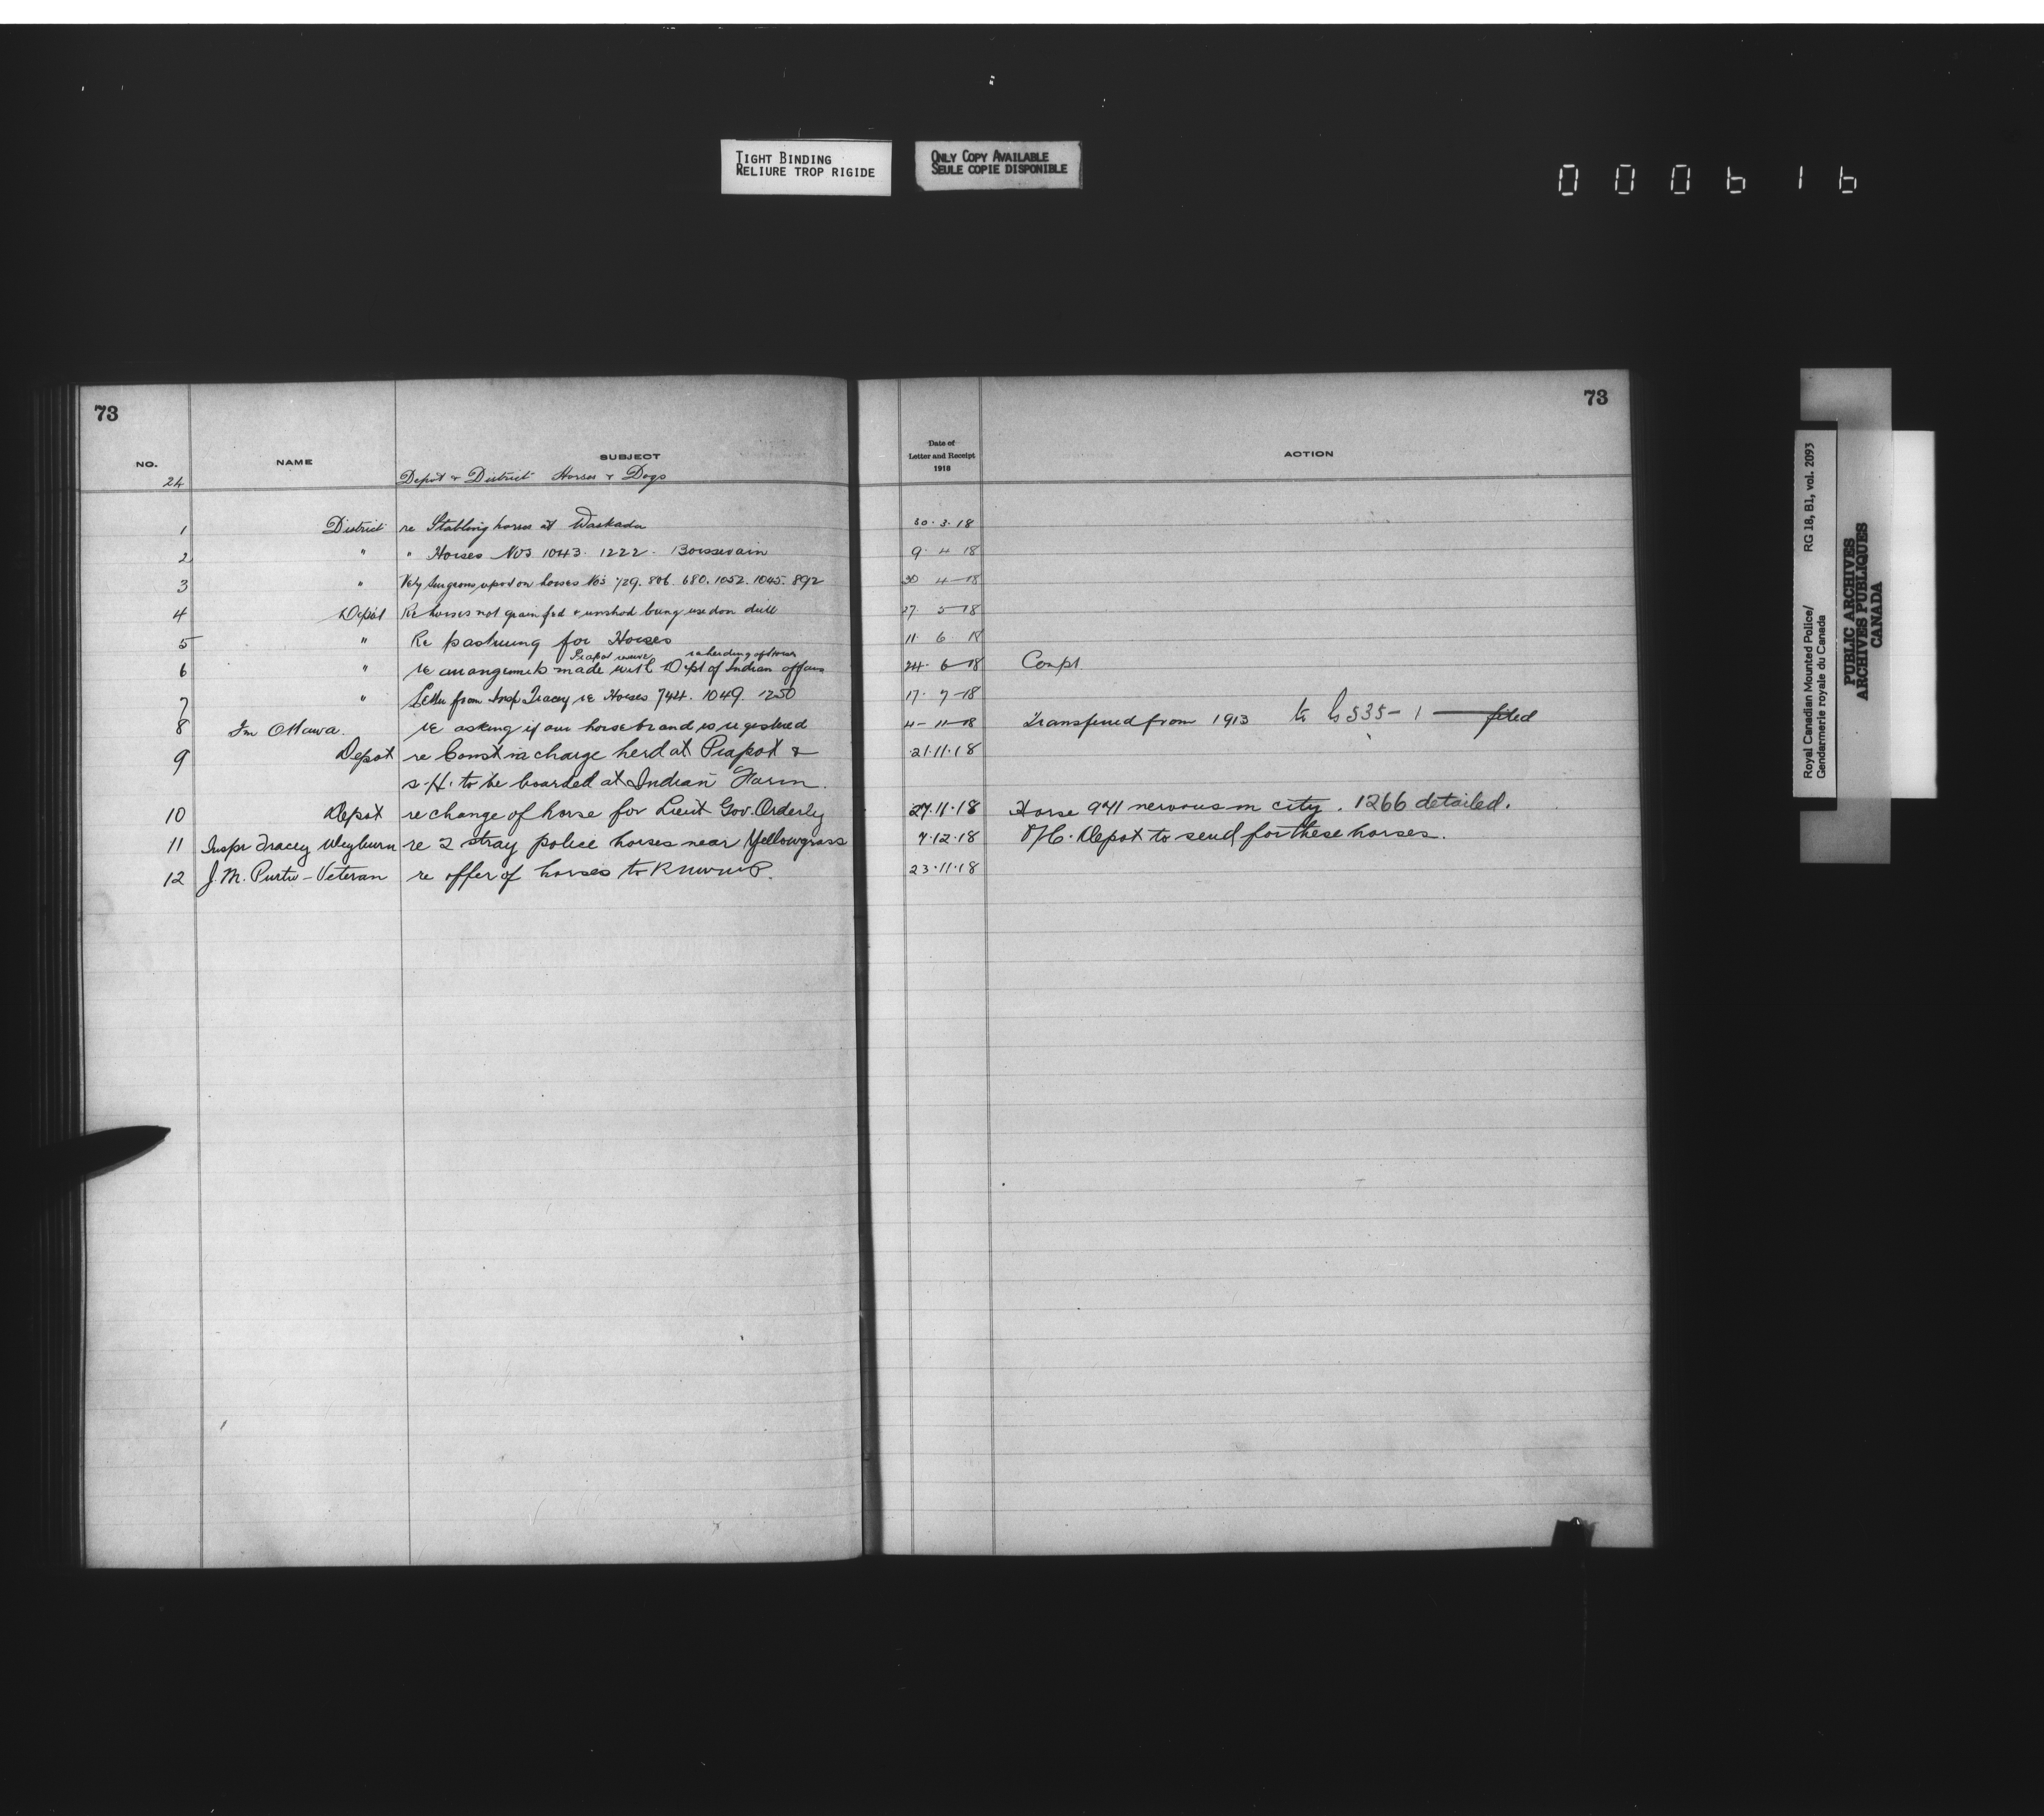 TIGHT BINDING
RELIURE TROP RIGIDE
ONLY COPY AVAILABLE
SEULE COPIE DISPONIBLE
000616
73
NO. NAME SUBJECT
24 Depot & District Horses & Dogs
1 District re Stabling horses at Waskada
2 " " Horses Nos 1043. 1222. Boissevain
3 " Vety Surgeons report on horses Nos 729. 806. 680. 1052. 1045. 892
4 Depot Re horses not grain fed & unshod being used on drill
5 " Re pasturing for Horses
Piapot reserve re herding of Horses
6 " re arrangements made with Dept of Indian affairs
7 " Letter from Insp Tracey re Horses 744. 1049. 1250
8 Ottawa. re asking if our horse brand is registered
9 Depot re Const in charge herd at Piapot &
S.H. to be boarded at Indian Farm.
10 Depot re change of horse for Lieut Gov. Orderly
11 Inspr Tracey Weyburn re 2 stray police horses near Yellowgrass
12 J. M. – Veteran re offer of horses to RNWMP.
73
Date of
Letter and Receipt
1918
ACTION
30.3.18
9 4 18
30 4-18
27 5-18
11. 6. 18
24. 6-18
17. 7-18
4-11-18 Transferred from 1913 to 535-1 filed
21.11.18
27.11.18 Horse 941 nervous in city. 1266 detailed.
7.12.18 O/C. Depot to send for these horses.
23.11.18
Royal Canadian Mounted Police/ RG 18, B1, vol. 2093
Gendarmerie royale du Canada
PUBLIC ARCHIVES
ARCHIVES PUBLIQUES
CANADA